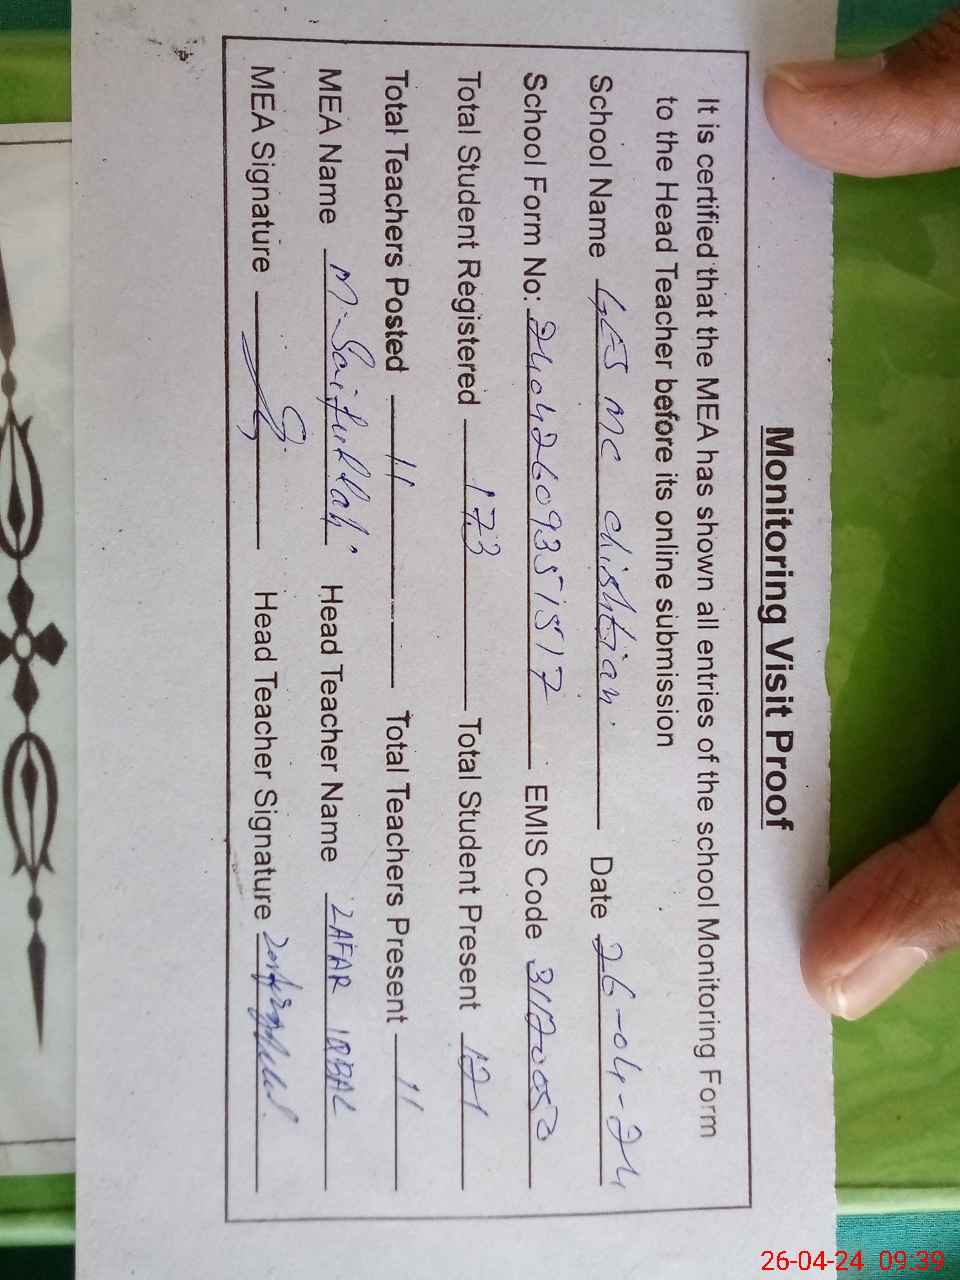 Monitoring Visit Proof
It is certified that the MEA has shown all entries of the school Monitoring Form
to the Head Teacher before its online submission
School Name GES MC chishtian. Date 26-04-24
School Form No: 24042609351517 EMIS Code
Total Student Registered 173 Total Student Present 121
Total Teachers Posted 11 Total Teachers Present 11
MEA Name M. Saifullah Head Teacher Name ZAFAR IQBAL
MEA Signature Head Teacher Signature
26-04-24 09:39